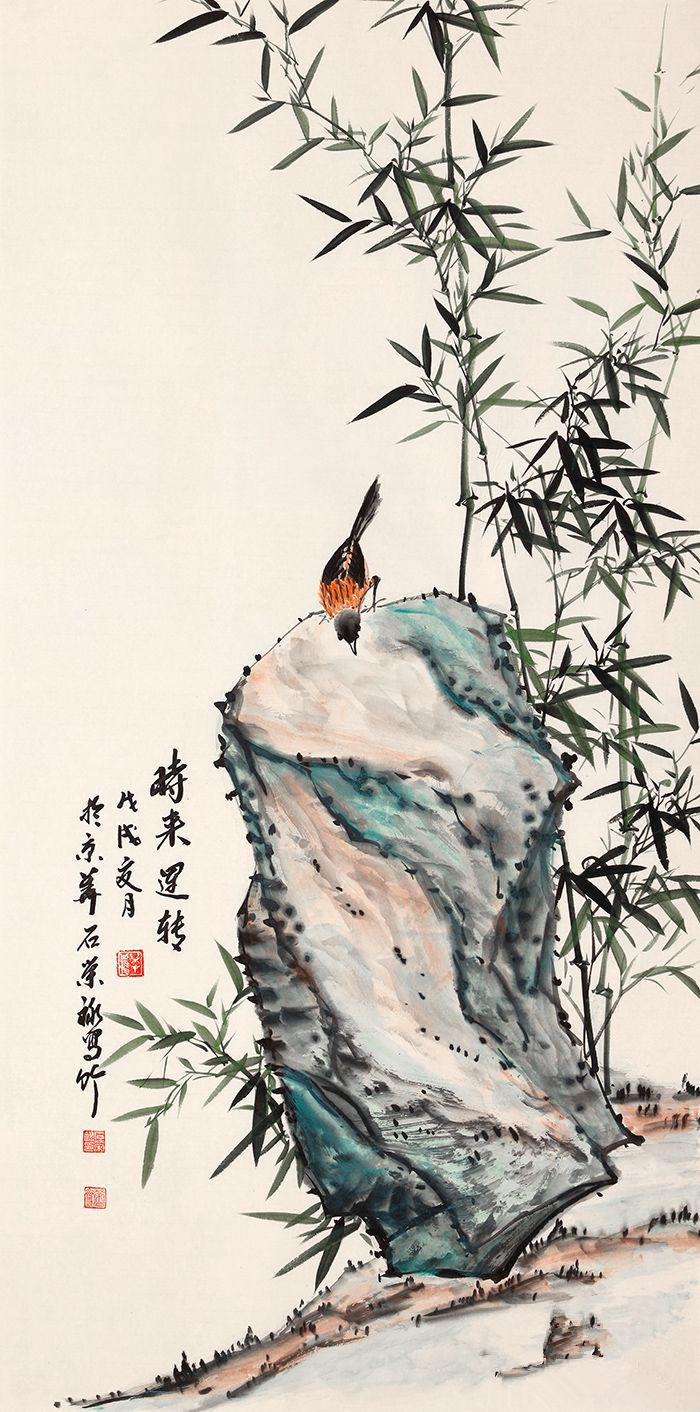 時来運转
戊戌夏月
於京華石荣禄寫竹